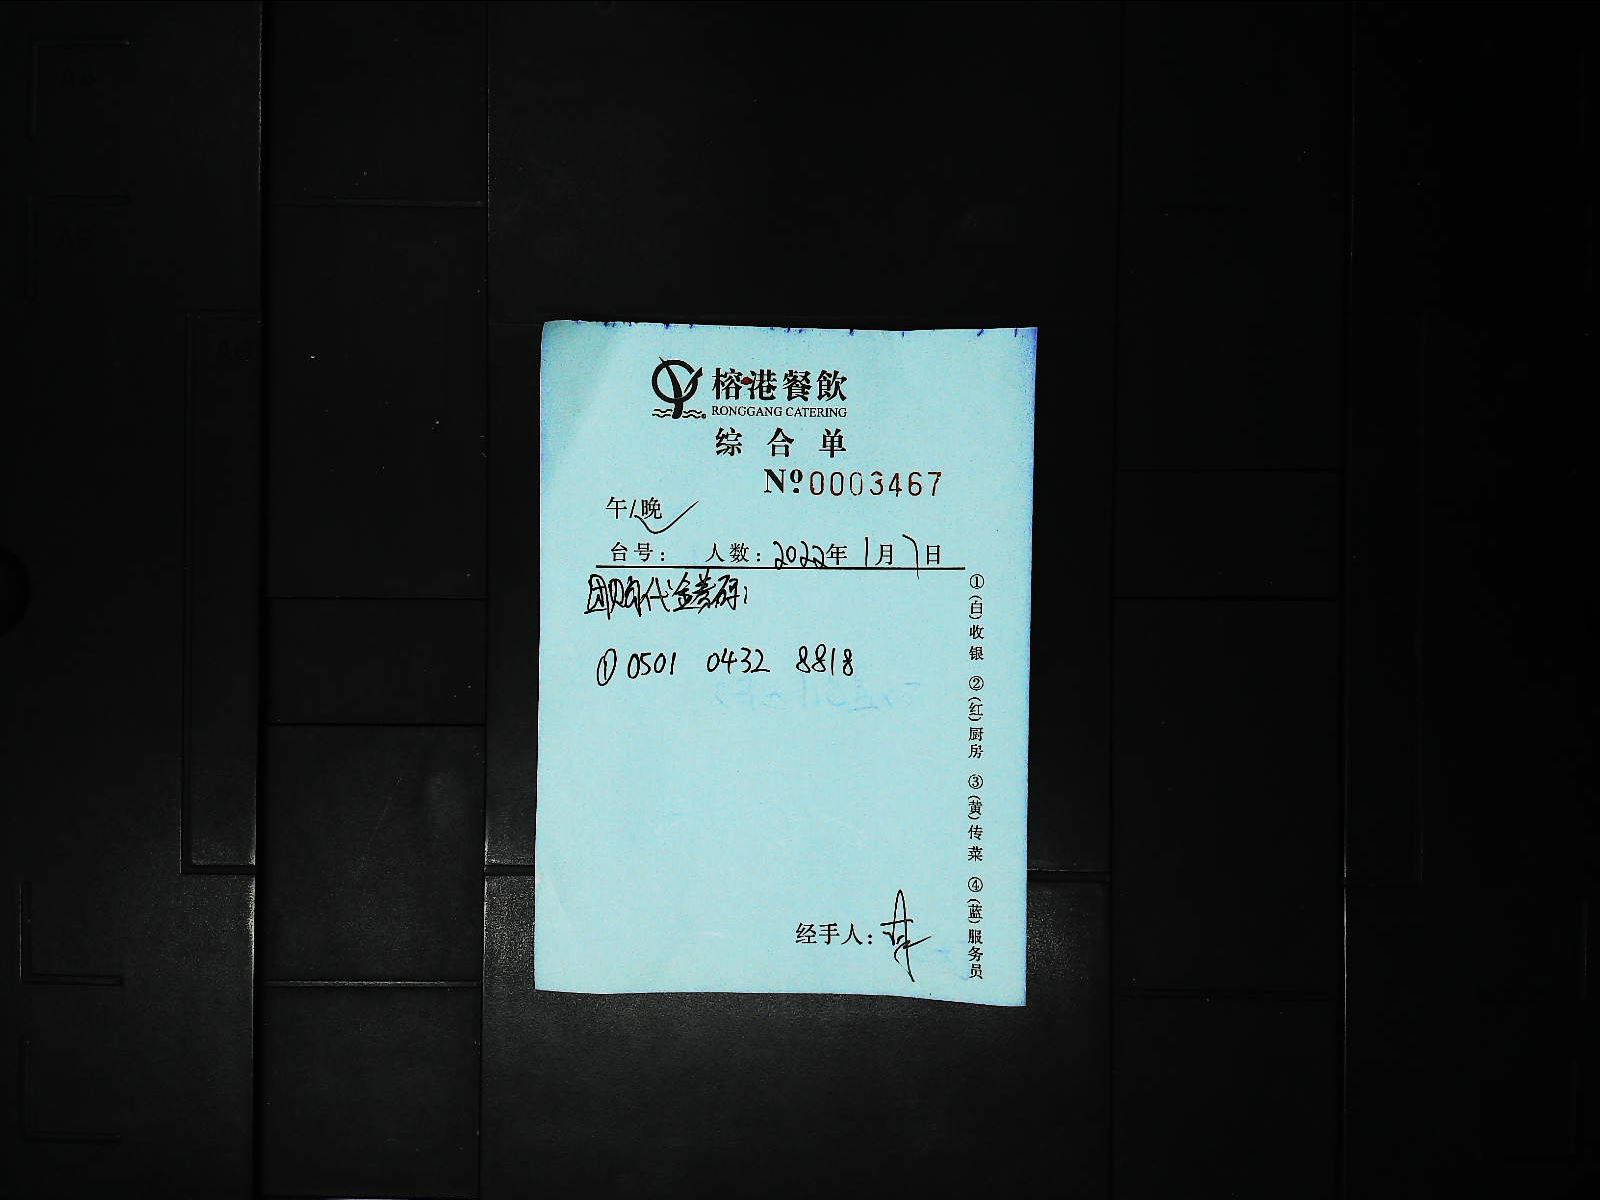 榕港餐飲
RONGGANG CATERING
综合单
Nº 0003467
午/晚
台号： 人数：2022年1月7日
团购代金券码：
① 0501 0432 8818
经手人：
①(白)收银 ②(红)厨房 ③(黄)传菜 ④(蓝)服务员